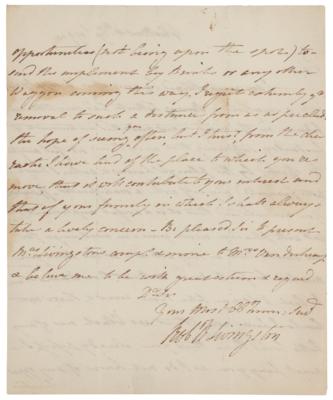 opportunities (not being upon the spot) to
send the implement by Brinks or any other
waggon coming this way. I regret extremely yr
removal to such a distance from us as precludes
the hope of seeing you often, but I trust, from the cha
racter I have had of the place to which you re
move that it will contribute to your interest and
that of your family in which I shall always
take a lively concern - Be pleased Sir to present
Mrs Livingstons compts & mine to Mrs
& believe me to be with great esteem & regard
Dr Sir
Your Most Obt Hum Servt
Robt R Livingston